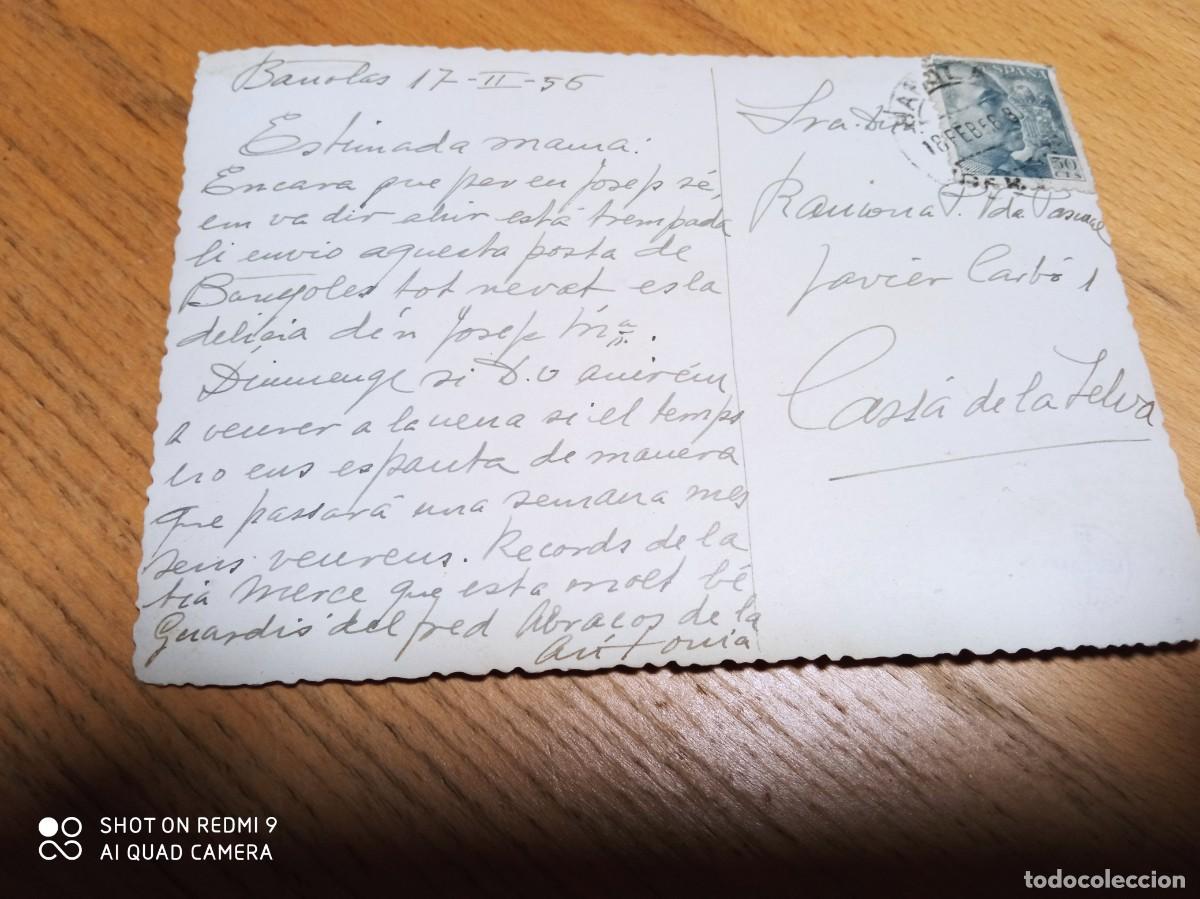 Bañolas 17-II-56
Estimada mama:
Encara que per en Josep sé,
em va dir ahir está trempada
li envio aquesta posta de
Banyoles tot nevat es la
delicia dén Josep Mª.
Diumenge si D.v anirém
a veurer a la nena si el temps
no ens espanta de manera
que passará una semana mes
sens veurens. Records de la
tia Merce que esta molt bé
Guardis del fred Abraços de la
Antonia
Sra. Dª
Ramona P. Vda Pascual
Javier Carbó 1
Cassá de la Selva
ESPAÑA
50
CTS
18 FEB 56
SHOT ON REDMI 9
AI QUAD CAMERA
todocoleccion